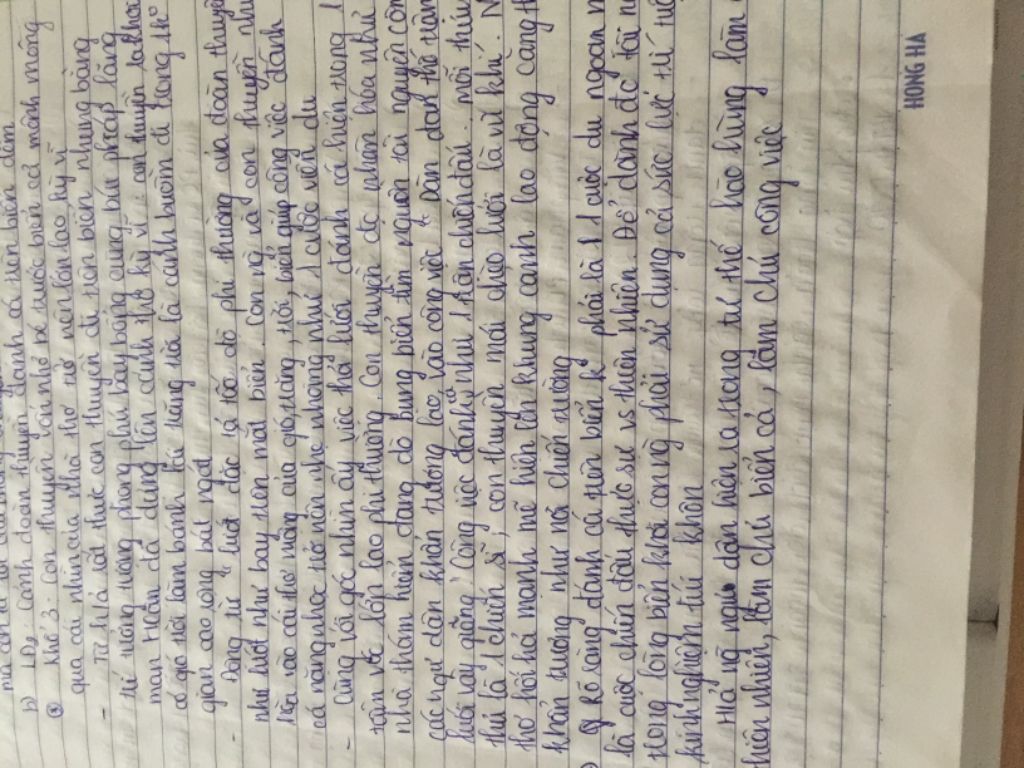 b) LĐ2: Cảnh đoàn thuyền đánh cá trên biển đêm
* Khổ 3: Con thuyền vốn nhỏ bé trước biển cả mênh mông
qua cái nhìn của nhà thơ trở nên lớn lao kỹ vĩ
- Từ tả rất thực con thuyền đi trên biển nhưng bằng
trí tưởng tượng phong phú bay bổng cùng bút pháp lãng
mạn Huy Cận đã dựng lên cảnh thơ kỳ vĩ: con thuyền ra khơi
có gió trời làm bánh lái trăng vừa là cánh buồm đi trong thơ
gian cao rộng bát ngát
- Động từ " lướt " đặc tả tốc độ phi thường của đoàn thuyền
như lướt như bay trên mặt biển. Con ng và con thuyền như
vào cái thơ mộng của gió trăng, trời biển giúp công việc đánh
cá nặng nhọc trở nên nhẹ nhàng như 1 cuộc vui du
- Cũng với góc nhìn ấy việc thả lưới đánh cá hiện trong
trận và lớn lao phi thường. Con thuyền đc nhân hóa như
nhà thám hiểm đang dò bụng biển tìm nguồn tài nguyên còn
các ngư dân khẩn trương lao vào công việc " Dàn đan thế trận
lưới vây giăng" Công việc đánh cá như 1 trận chiến đấu. mỗi thủy
thủ là 1 chiến sĩ, con thuyền mái chèo lưới là vũ khí.
thơ hối hả mạnh mẽ hiện lên khung cảnh lao động căng
khẩn trương như nơi chiến trường
Rõ ràng đánh cá trên biển kg phải là 1 cuộc du ngoạn
là cuộc chiến đấu thực sự vs thiên nhiên. Để đánh dò tài
trong lòng biển khơi con ng phải sử dụng cả sức lực trí tuệ
kinh nghiệm tức khôn
Hả ng ngư dân hiện ra trong tư thế hào hùng làm
thiên nhiên, làm chủ biển cả, làm chủ công việc
HONG HA